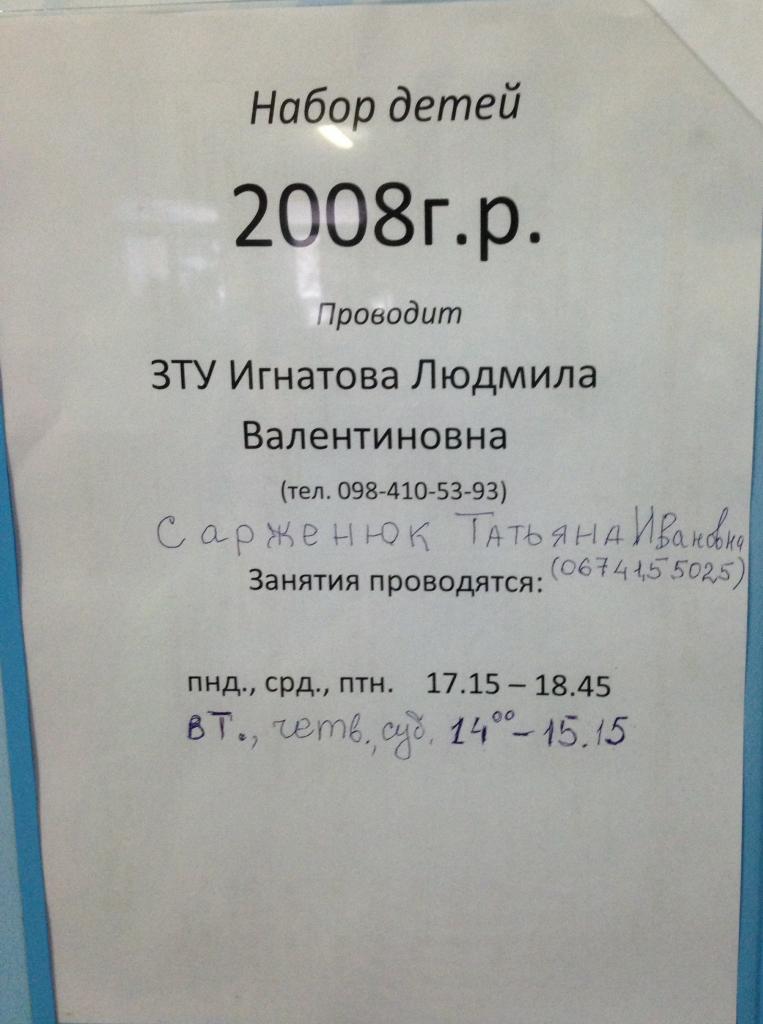 Набор детей
2008г.р.
Проводит
ЗТУ Игнатова Людмила
Валентиновна
(тел. 098-410-53-93)
Сарженюк Татьяна Ивановна
(0674155025)
Занятия проводятся:
пнд., срд., птн. 17.15 – 18.45
вт., четв., суб. 14⁰⁰ – 15.15